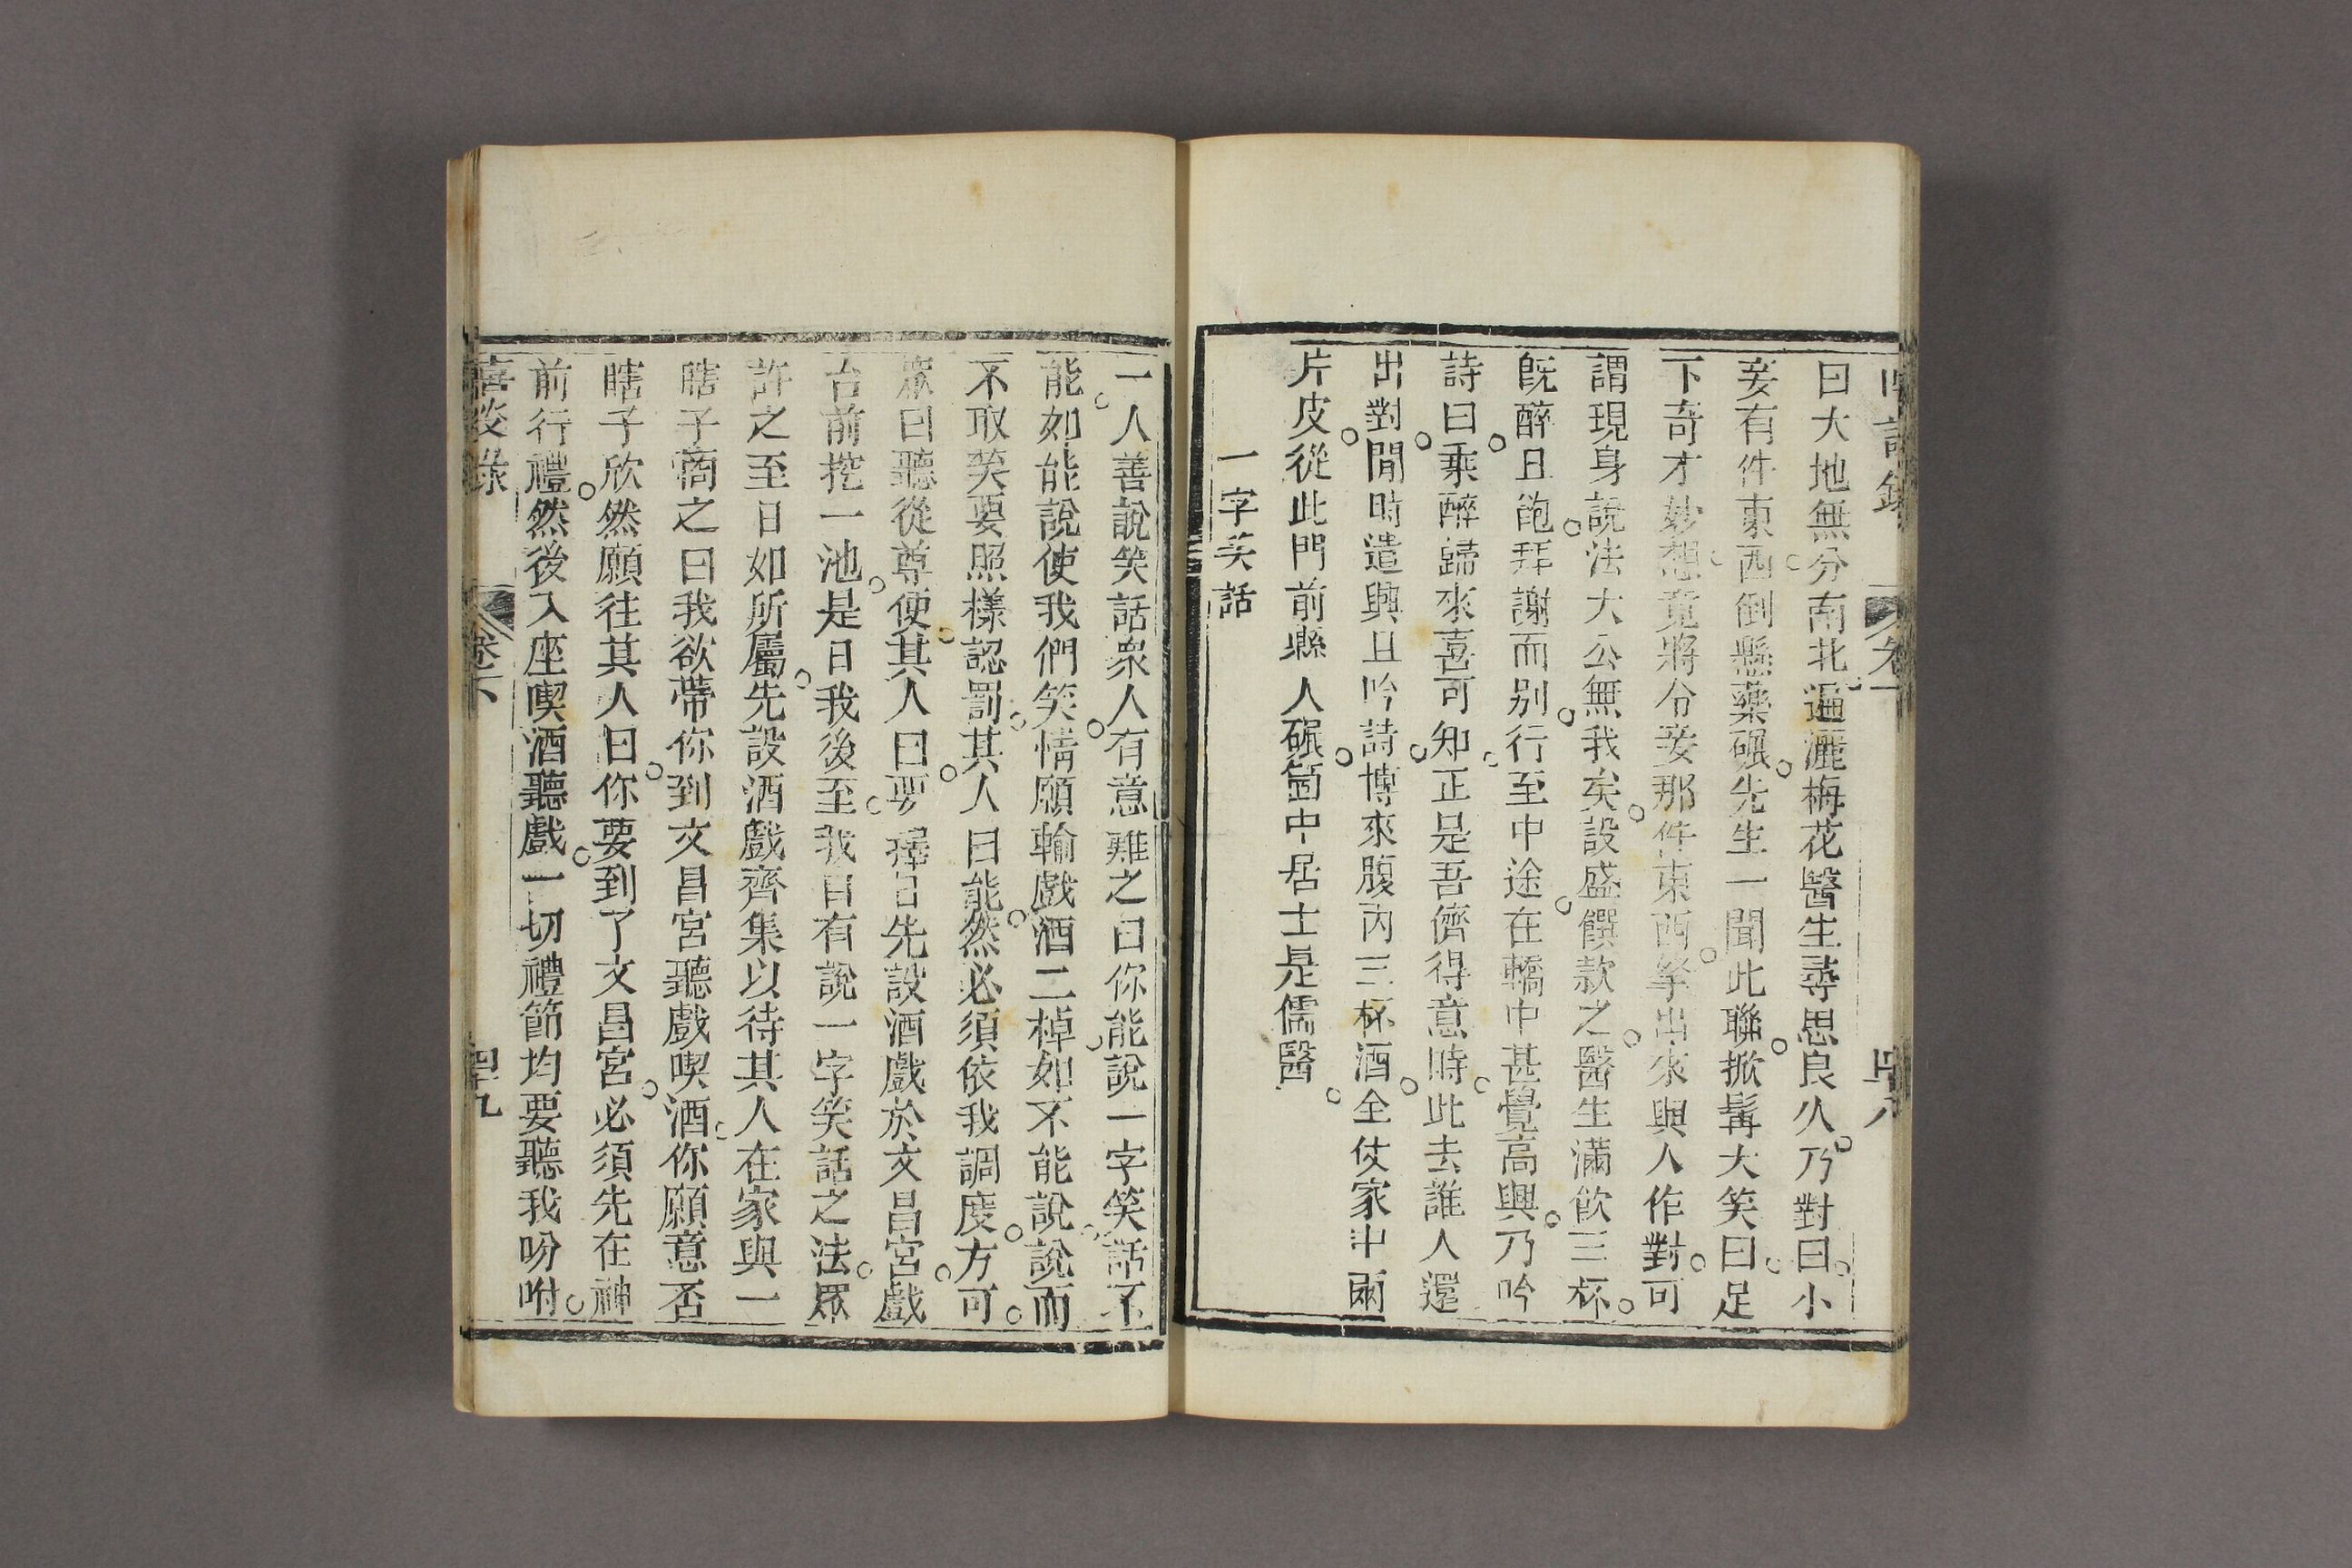 曰大地無分南北遍灑梅花醫生尋思良久乃對曰小
妾有件東西倒懸藥碾先生一聞此聯掀髯大笑曰足
下奇才妙想竟將令妾那件東西拏出來與人作對可
謂現身說法大公無我矣設盛饌款之醫生滿飲三杯
既醉且飽拜謝而别行至中途在轎中甚覺高興乃吟
詩曰乘醉歸來喜可知正是吾儕得意時此去誰人還
出對閒時遣興且吟詩博來腹內三杯酒全仗家中兩
片皮從此門前縣人碾箇中居士是儒醫
一字笑話
一人善說笑話衆人有意難之曰你能說一字笑話不
能如能說使我們笑情願輸戲酒二棹如不能說說而
不取笑要照樣認罰其人曰能然必須依我調度方可
眾曰聽從尊便其人曰要擇日先設酒戲於文昌宮戲
台前挖一池是日我後至我自有說一字笑話之法眾
許之至日如所屬先設酒戲齊集以待其人在家與一
瞎子商之曰我欲帶你到文昌宮聽戲喫酒你願意否
瞎子欣然願往其人曰你要到了文昌宮必須先在神
前行禮然後入座喫酒聽戲一切禮節均要聽我吩咐
卷下
四十九